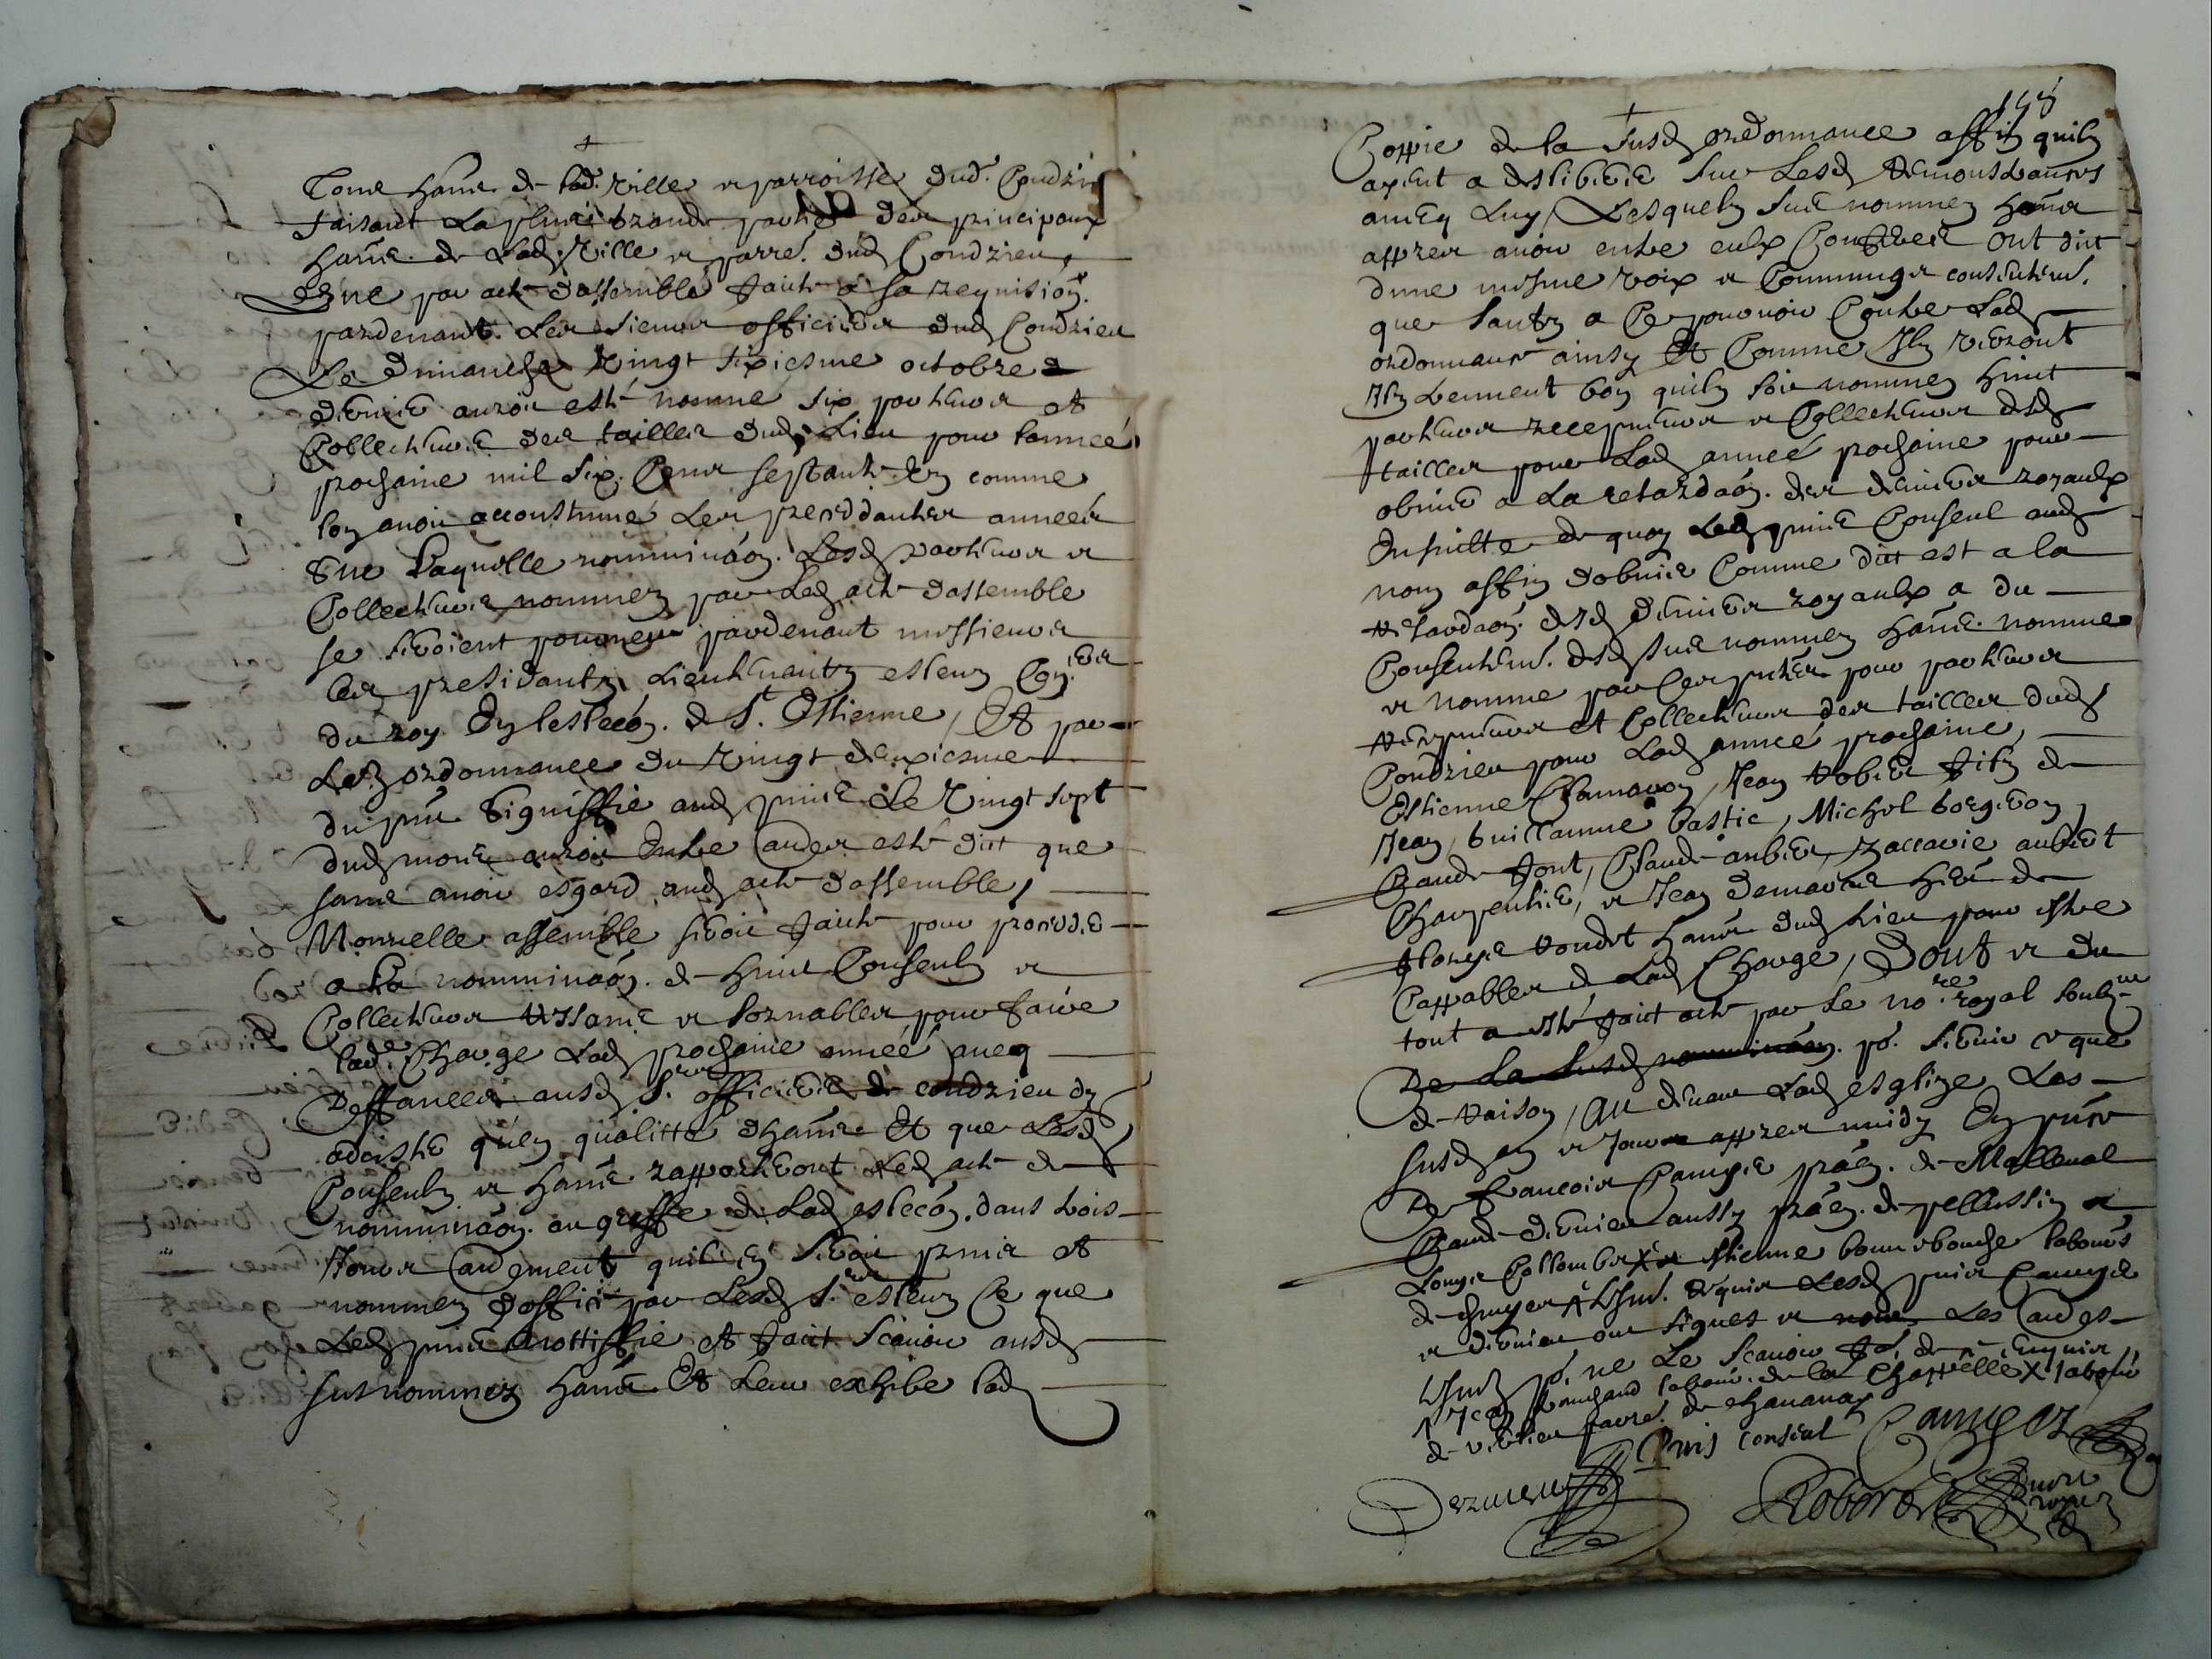 Tous hans. de lad. ville et parroisse dud. Condrieu
faisant la plus grande partie des principaux
hans. de lad. ville et parre. dud Condrieu
que par acte dassemblé faicte a sa requisiõn.
pardevant les sieurs officiers dud Condrieu
Le dimanche vingt sixiesme octobre
dernier auroit esté nommé six parteurs et
Collecteurs des tailles dud Lieu pour lannéé
prochaine mil six Cens septante un comme
lon avoit accoustumé les precedantes annéés
Sur Laquelle nomminãon. Lesd parteurs et
Collecteurs nommez par Led acte dassemblé
se seroient pourveu pardevant messieurs
les presidantz Lieutenantz esleuz Con.ers
du roy En leslecõn. de St. Estienne, Et par
Leur ordonnance du vingt deuxiesme
du pnt. Signiffié aud prins Le vingt sept
dud mois auroit Entre autres esté dict que
sans avoir esgard aud acte dassemblé,
Nouvelle assemblé seroit faicte pour proceder
a la nomminãon. de huict Conseulz et
Collecteurs ressans et solvables pour faire
lad. Charge Lad prochaine annéé avec
Deffances ausd Srs. officiers de condrieu dy
adcister quen qualitté dhans. Et que Lesd
Consulz et hans. rapporteront Led acte de
nomminãon. au greffe de Lad eslecõn. dans trois
Jours autrement quil En seroit prins et
nommez doffice par Lesd Srs. esleuz Ce que
Led prins nottiffie et faict scavoir ausd
susnommez hans. Et Leur exhibe lad
158
Coppie de la susd ordonnance affin quilz
ayent a desliberer sur Lesd remonstrances
avecq Luy, Lesquelz sus nommez hans.
appres avoir entre eulx Conferer ont dict
dune mesme voix et Commung consentemt.
que sautz a Ce pourvoir Contre Lad
ordonnance ainsy Et Comme Ilz verront
Ilz trouvent bon quilz soit nommez huict
parteurs recepveurs et Collecteurs desd
tailles pour Lad annéé prochaine pour
obvier a La retardãon. des deniers royaulx
Ensuitte de quoy Led prins Conseul aud
nom affin dobvier Comme dict est a la
retardãon. desd deniers royaulx a du
Consentemt. desd sus nommez hans. nommé
et nomme par Ces pntes. pour parteurs
recepveurs et Collecteurs des tailles dud
Condrieu pour Lad année prochaine,
Estienne Chanavon, Jean robier filz de
Jean, Guillaume bastie, Michel bergeron,
Claude font, Claude aubier, Zaccarie aubert
Charpentier, et Jean demares hers de
fleurye vondot hans dud Lieu pour estre
Cappables de Lad Charge, Dont et du
tout a esté faict acte par le nore. royal soubzne
De la susd nomminãon. po. servir et que
de raison, au devant Lad esglize Les
susd an et Jour appres midy En pnce
De francois Camyer prãen. de Malleval
Claude dernieu aussy prãen. de pellussin
Louys Collombet X et Estienne bonnebouche labours
de chuyer X tesm. requis Lesd prins Camyer
et dernieu ont signes et non Les autres
tesm. po. ne Le scavoir de ce enquis
X Jean bouchand labour. de la Chappelle X labour
de verlieu parre. de chavanay
Prins conseul Camyer
Dernieu Roboret